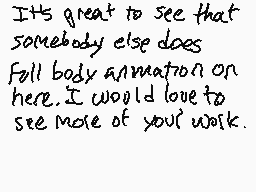 It's great to see that
somebody else does
full body animation on
here. I would love to
see more of your work.